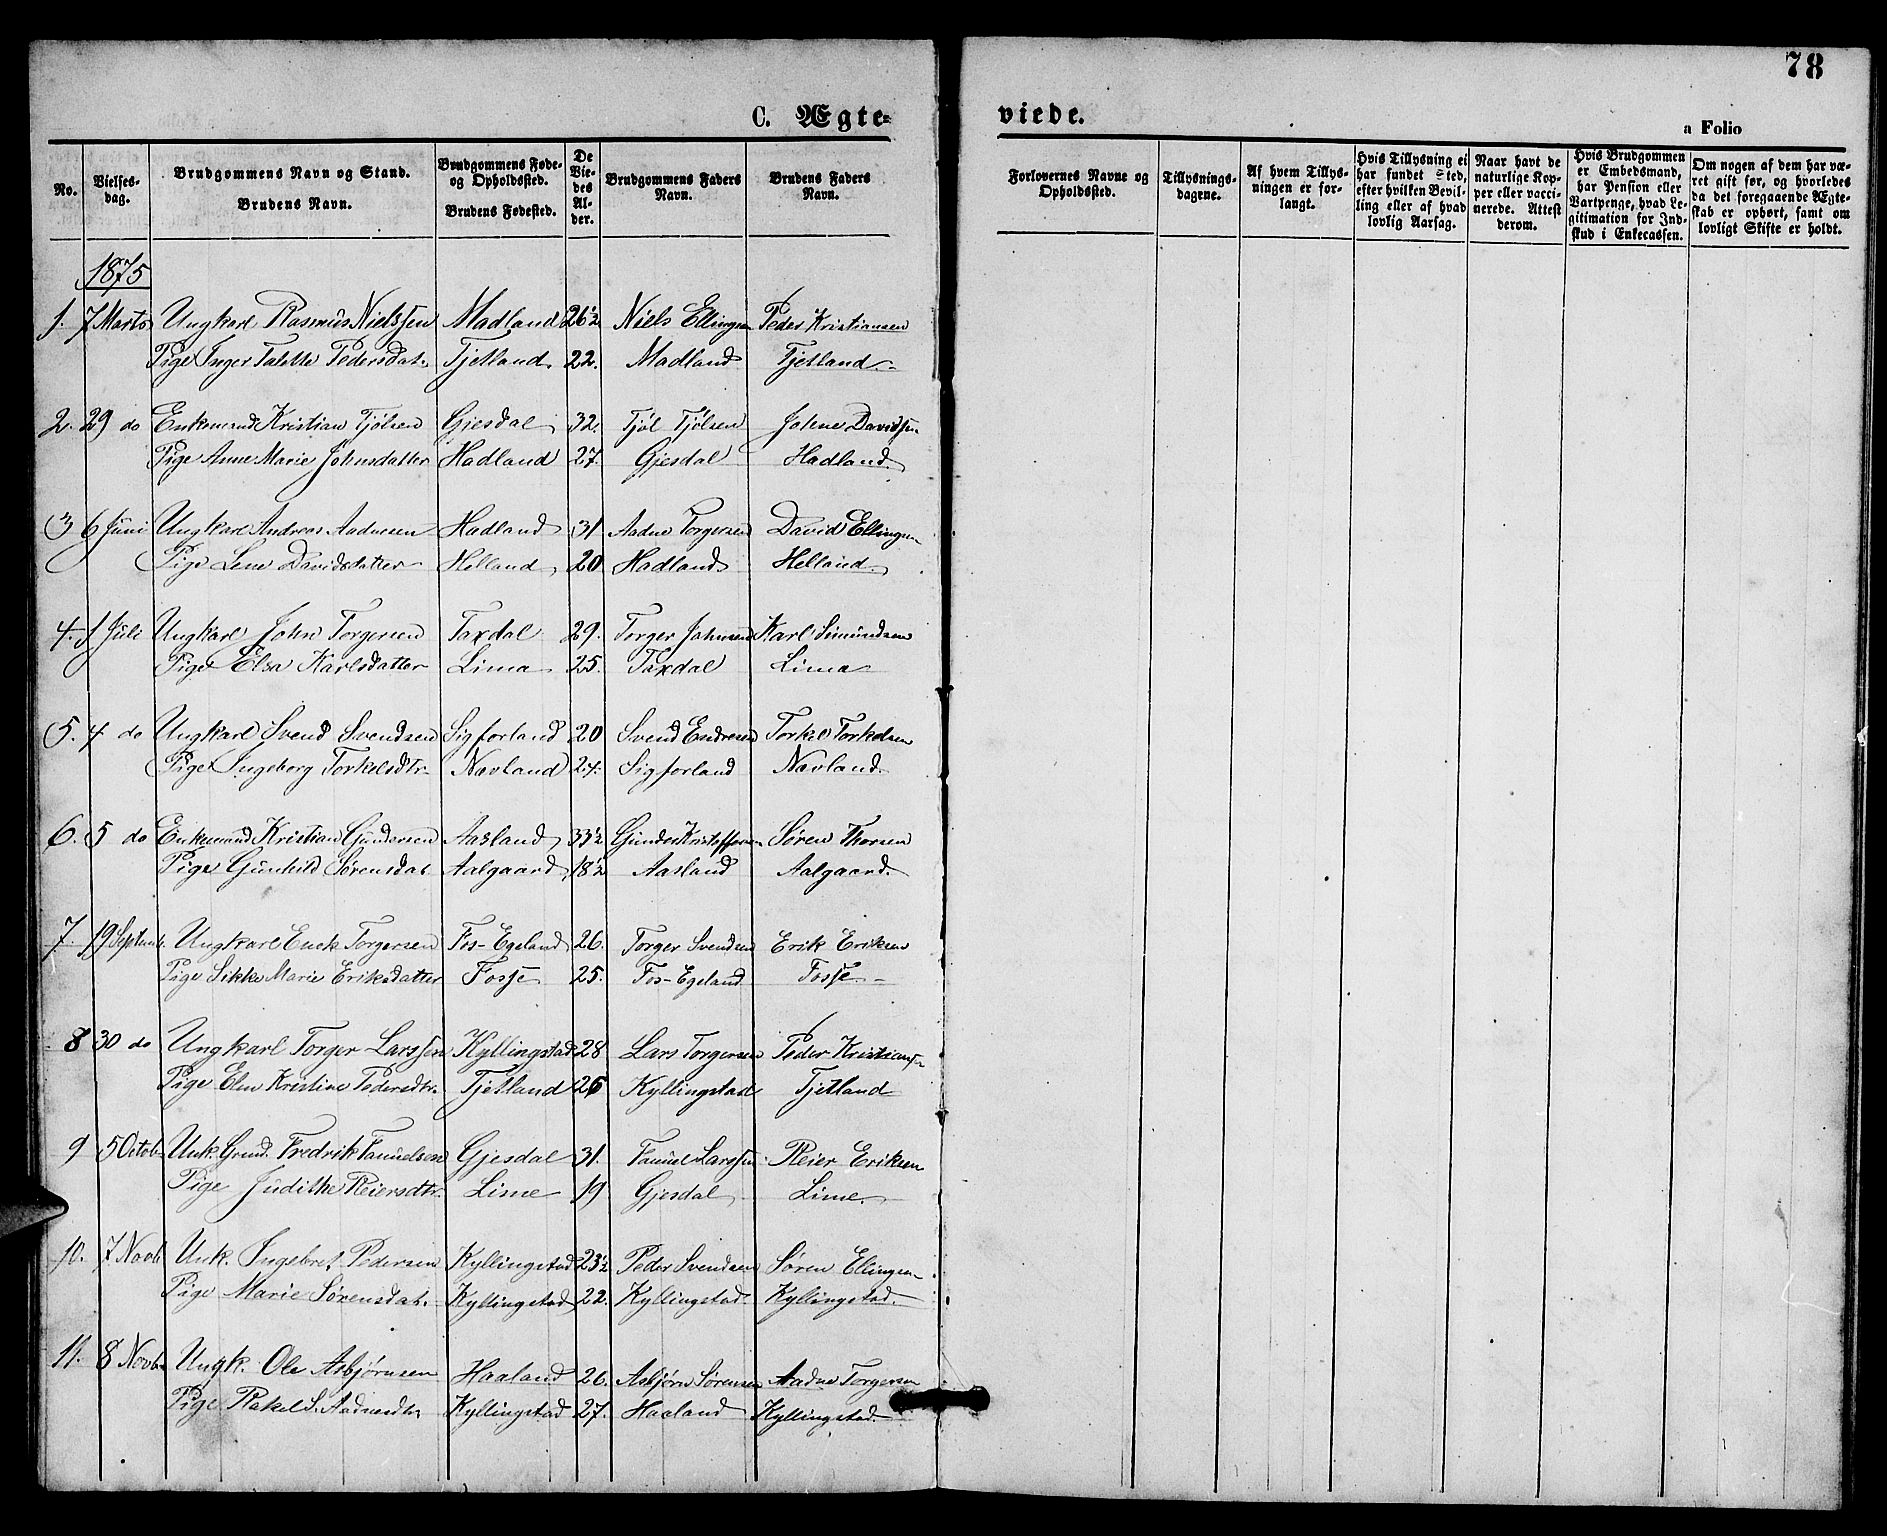 78
C. Ægte-
viede.
a Folio
No.
Vielses-
dag.
Brudgommens Navn og Stand.
Brudens Navn.
Brudgommens Føde-
og Opholdssted.
Brudens Fødested.
De
Vie-
des
Al-
der.
Brudgommens Faders
Navn.
Brudens Faders
Navn.
Forlovernes Navne og
Opholdssted.
Tillysnings-
dagene.
Af hvem Tillys-
ningen er for-
langt.
Hvis Tillysning ei
har fundet Sted,
efter hvilken Bevil-
ling eller af hvad
lovlig Aarsag.
Naar havt de
naturlige Kop-
per eller vacci-
nerede. Attest
derom.
Hvis Brudgommen
er Embedsmand,
har Pension eller
Vartpenge, hvad Le-
gitimation for Ind-
skud i Enkecassen.
Om nogen af dem har væ-
ret gift før, og hvorledes
da det foregaaende Ægte-
skab er ophørt, samt om
lovligt Skifte er holdt.
1875
1. 7 Marts Ungkarl Rasmus Nielssen Madland 26½ Niels Ellingsen Peder Kristiansen
Pige Inger Talette Pedersdat. Tjetland 22. Madland Tjetland
2. 29 do Enkemand Kristian Tjølsen Gjesdal 32. Tjøl Tjølsen Johne Davidsen
Pige Anne Marie Johnsdatter Hadland 27. Gjesdal Hadland
3 6 Juni Ungkarl Andreas Aadnesen Hadland 31 Aadne Torgersen David Ellingsen
Pige Lene Davidsdatter Helland 20 Hadland Helland
4. 1 Juli Ungkarl John Torgersen Taxdal 29. Torger Johnsen Karl Simundsen
Pige Elsa Karlsdatter Lima 25. Taxdal Lima
5. 4 do Ungkarl Svend Svendsen Sigforland 20 Svend Endresen Torkel Torkelsen
Pige Ingeborg Torkelsdtr. Navland 24. Sigforland Navland
6. 5 do Enkemand Kristian Gundersen Aasland 33½ Gunder Kristoffersen Søren Thorsen
Pige Gunhild Sørensdat. Aalgaard 18½ Aasland Aalgaard
7. 19 Septemb. Ungkarl Enok Torgersen Fos-Egeland 26. Torger Svendsen Erik Eriksen
Pige Sikke Marie Eriksdatter Fosse 25. Fos-Egeland Fosse
8 30 do Ungkarl Torger Larssen Kyllingstad 28 Lars Torgersen Peder Kristiansen
Pige Elen Kristine Pedersdtr. Tjetland 26 Kyllingstad Tjetland
9 5 Octob. Unk. Grmd. Fredrik Fanuelsen Gjesdal 31. Fanuel Larssen Reier Eriksen
Pige Judithe Reiersdtr. Lime 19 Gjesdal Lime.
10. 7 Novb. Unk. Ingebret Pedersen Kyllingstad 23½ Peder Svendsen Søren Ellingsen
Pige Marie Sørensdat. Kyllingstad 22. Kyllingstad Kyllingstad
11. 8 Novb. Ungk. Ole Asbjørnsen Haaland 26. Asbjørn Sørensen Aadne Torgersen
Pige Rakel S. Aadnesdtr Kyllingstad 27. Haaland Kyllingstad